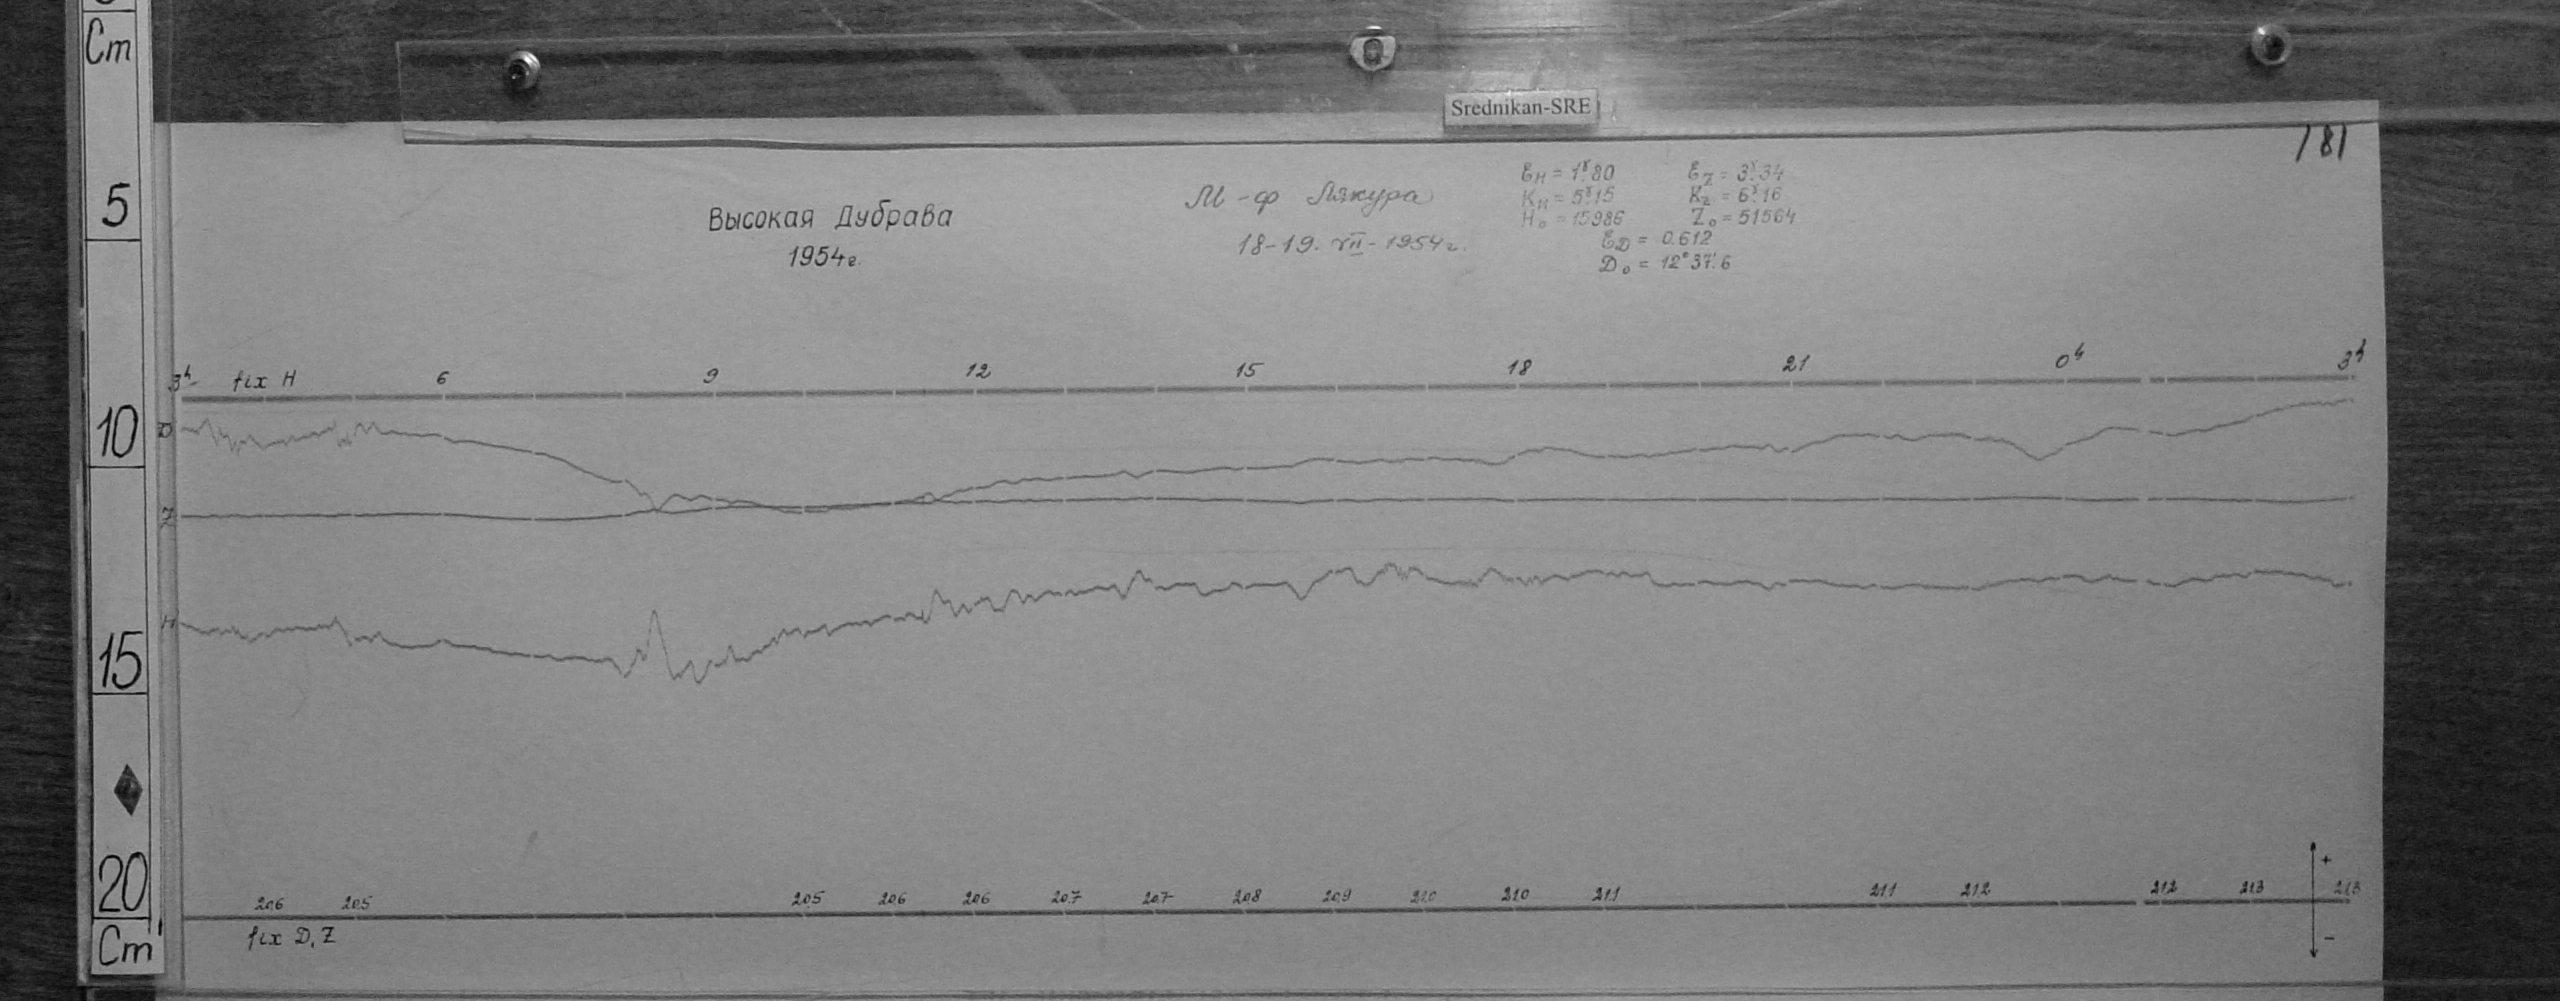 Cm
5
10
15
20
Cm
Srednikan-SRE
181
Высокая Дубрава
1954г.
М-ф Лякура
18-19. VII-1954г.
εH = 1γ.80 εZ = 3γ.34
KH = 5γ.15 KZ = 6γ.16
H0 = 15986 Z0 = 51564
εD = 0.612
D0 = 12°37'.6
3h fix H 6 9 12 15 18 21 0h 3h
D
Z
H
20.6 20.5 20.5 20.6 20.6 20.7 20.7 20.8 20.9 21.0 21.0 21.1 21.1 21.2 21.2 21.3 21.3
fix D, Z
+
-